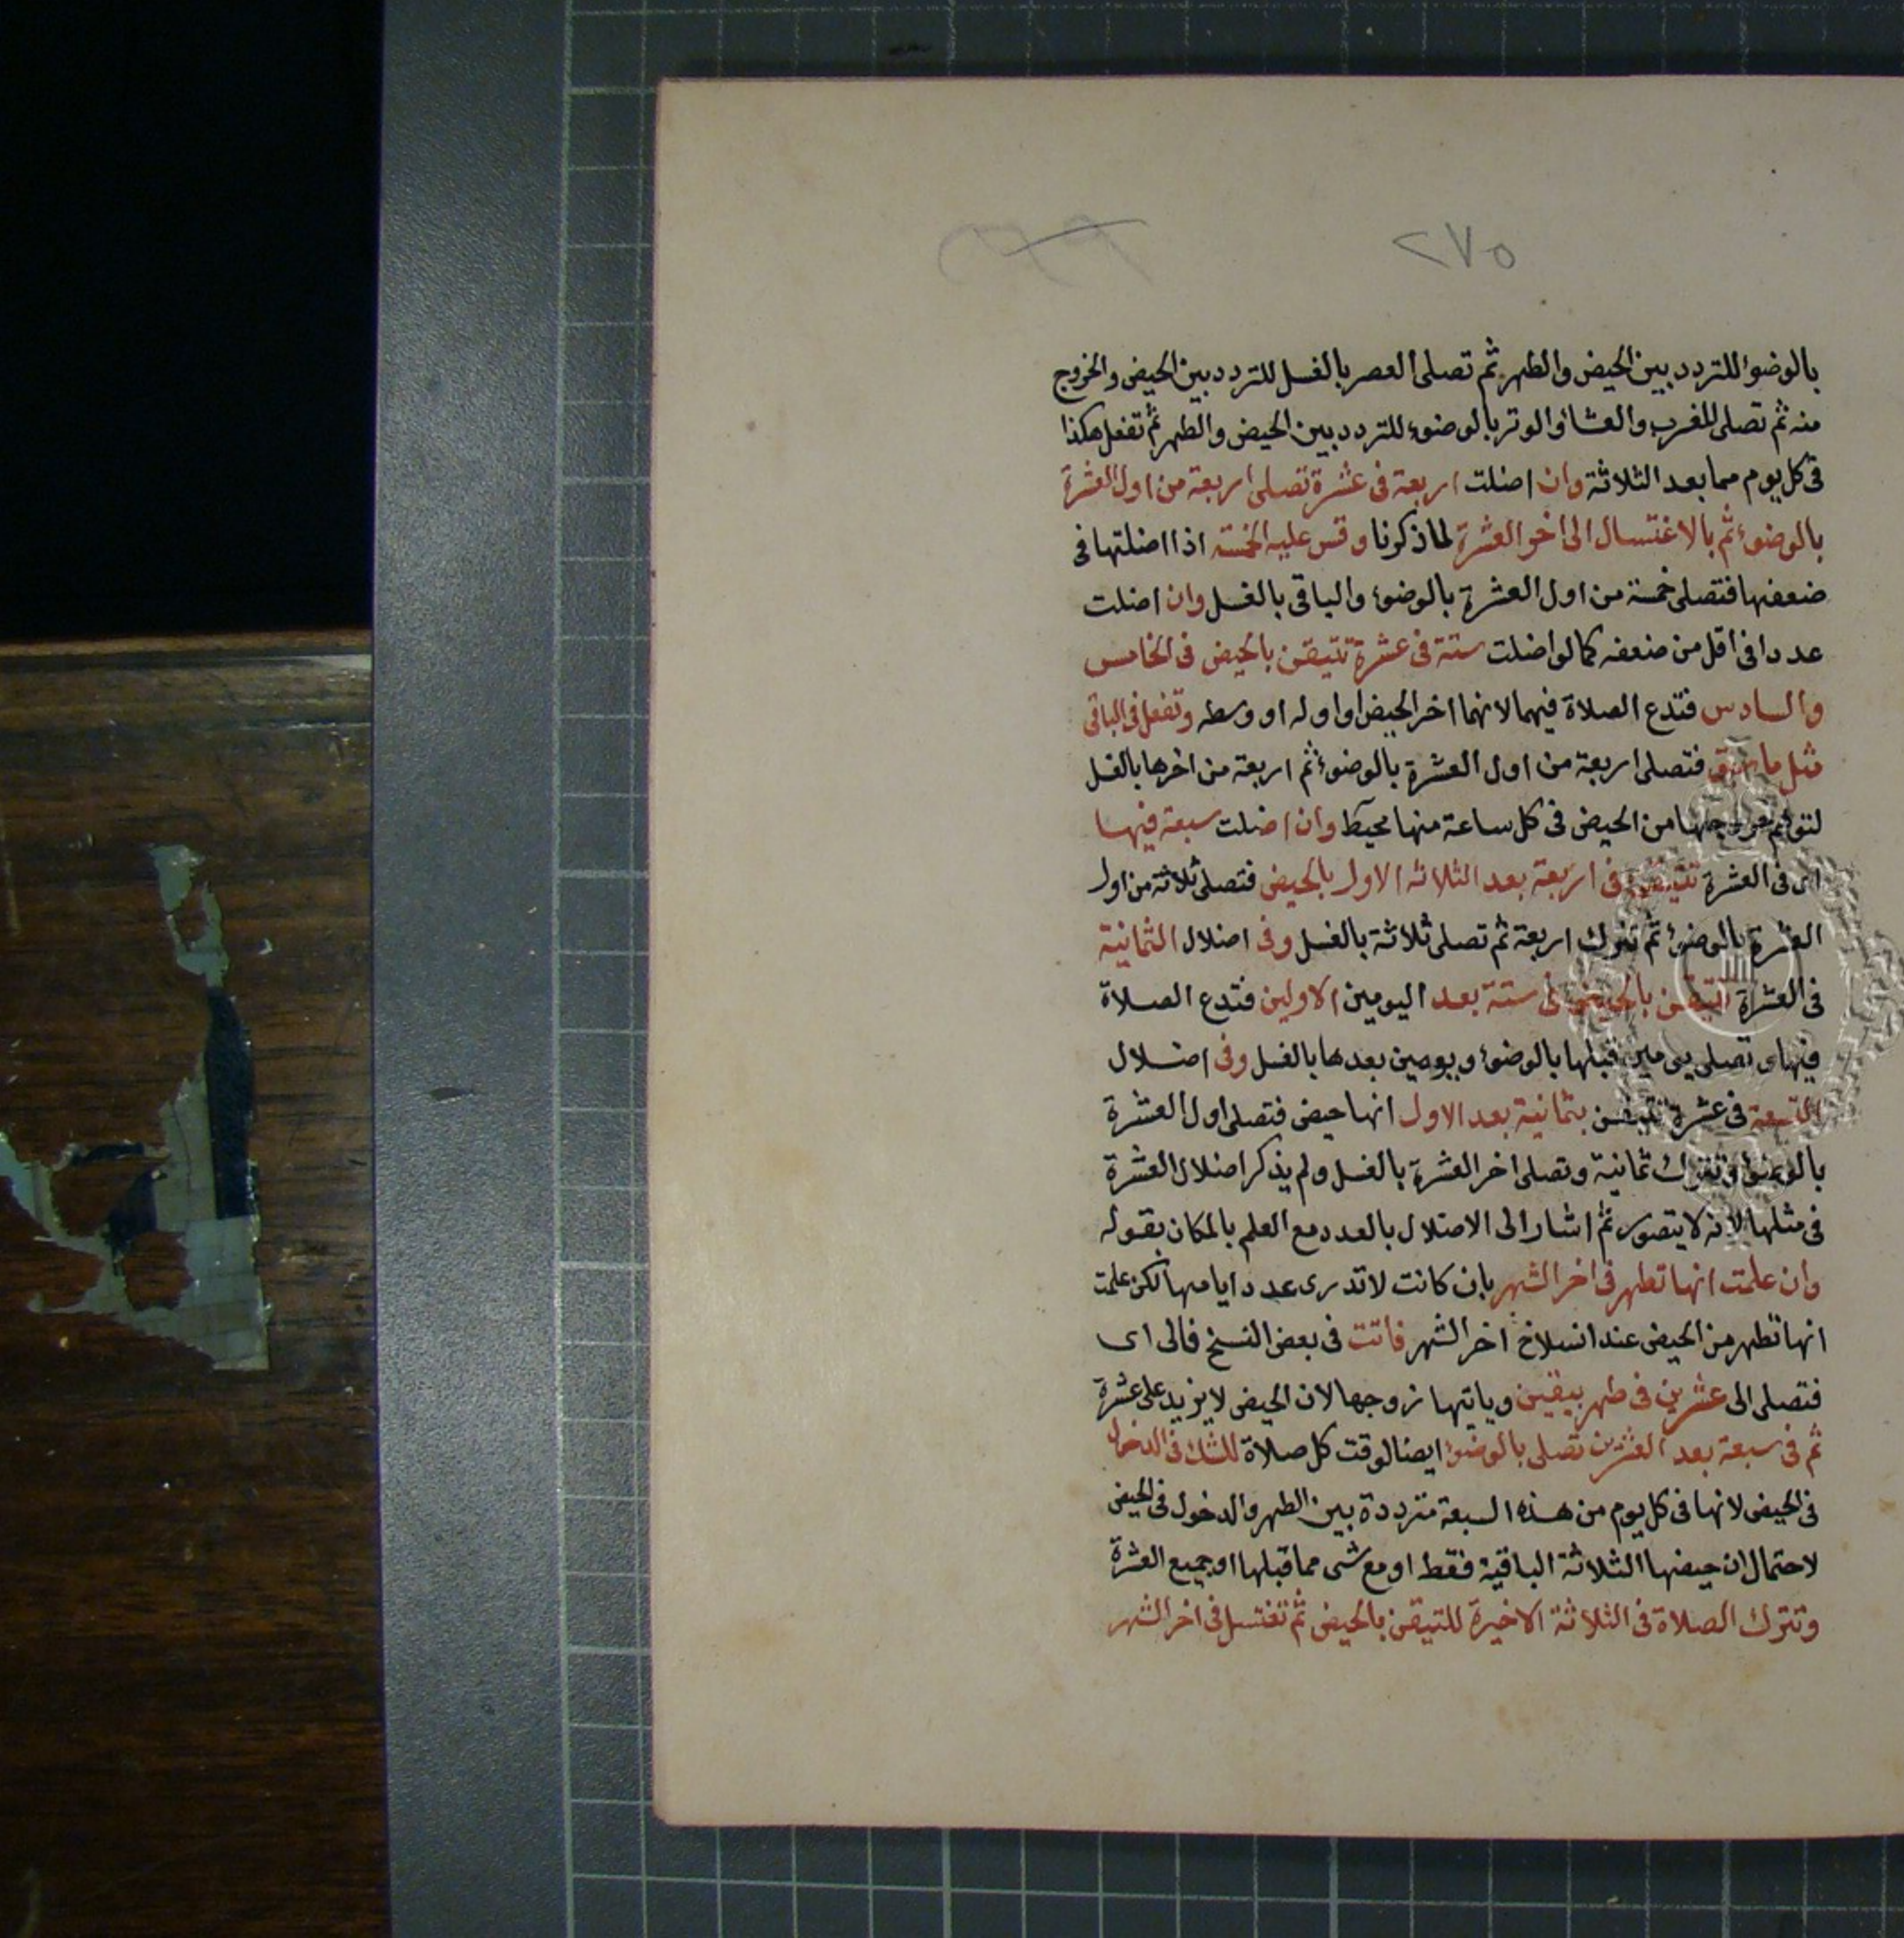 ٢٧٥
بالوضوء للتردد بين الحيض والطهر ثم تصلى العصر بالغسل للتردد بين الحيض والخروج
منه ثم تصلى المغرب والعشاء والوتر بالوضوء للتردد بين الحيض والطهر ثم تفعل هكذا
فى كل يوم مما بعد الثلاثة وان اضلت اربعة فى عشرة تصلى اربعة من اول العشرة
بالوضوء ثم بالاغتسال الى اخر العشرة لما ذكرنا وقس عليه الخمسة اذا اضلتها فى
ضعفها فتصلى خمسة من اول العشرة بالوضوء والباقى بالغسل وان اضلت
عددا فى اقل من ضعفه كما لو اضلت ستة فى عشرة تتيقن بالحيض فى الخامس
والسادس فتدع الصلاة فيهما لانهما اخر الحيض او اوله او وسطه وتفعل فى الباقى
مثل ما سبق فتصلى اربعة من اول العشرة بالوضوء ثم اربعة من اخرها بالغسل
لتوهم خروجها من الحيض فى كل ساعة منها محيط وان اضلت سبعة فيها
اى فى العشرة تتيقن فى اربعة بعد الثلاثة الاول بالحيض فتصلى ثلاثة من اول
العشرة بالوضوء ثم تترك اربعة ثم تصلى ثلاثة بالغسل وفى اضلال الثمانية
فى العشرة تتيقن بالحيض فى ستة بعد اليومين الاولين فتدع الصلاة
فيها وتصلى يومين قبلها بالوضوء ويومين بعدها بالغسل وفى اضلال
التسعة فى عشرة تتيقن بثمانية بعد الاول انها حيض فتصلى اول العشرة
بالوضوء وتترك ثمانية وتصلى اخر العشرة بالغسل ولم يذكر اضلال العشرة
فى مثلها لانه لا يتصور ثم اشار الى الاضلال بالعدد مع العلم بالمكان بقوله
وان علمت انها تطهر فى اخر الشهر بان كانت لا تدرى عدد ايامها لكن علمت
انها تطهر من الحيض عند انسلاخ اخر الشهر فاتت فى بعض النسخ فالى اى
فتصلى الى عشرين فى طهر بيقين وياتيها زوجها لان الحيض لا يزيد على عشرة
ثم فى سبعة بعد العشرين تصلى بالوضوء ايضا لوقت كل صلاة للشك فى الدخول
فى الحيض لانها فى كل يوم من هذه السبعة مترددة بين الطهر والدخول فى الحيض
لاحتمال ان حيضها الثلاثة الباقية فقط او مع شى مما قبلها او جميع العشرة
وتترك الصلاة فى الثلاثة الاخيرة للتيقن بالحيض ثم تغتسل فى اخر الشهر